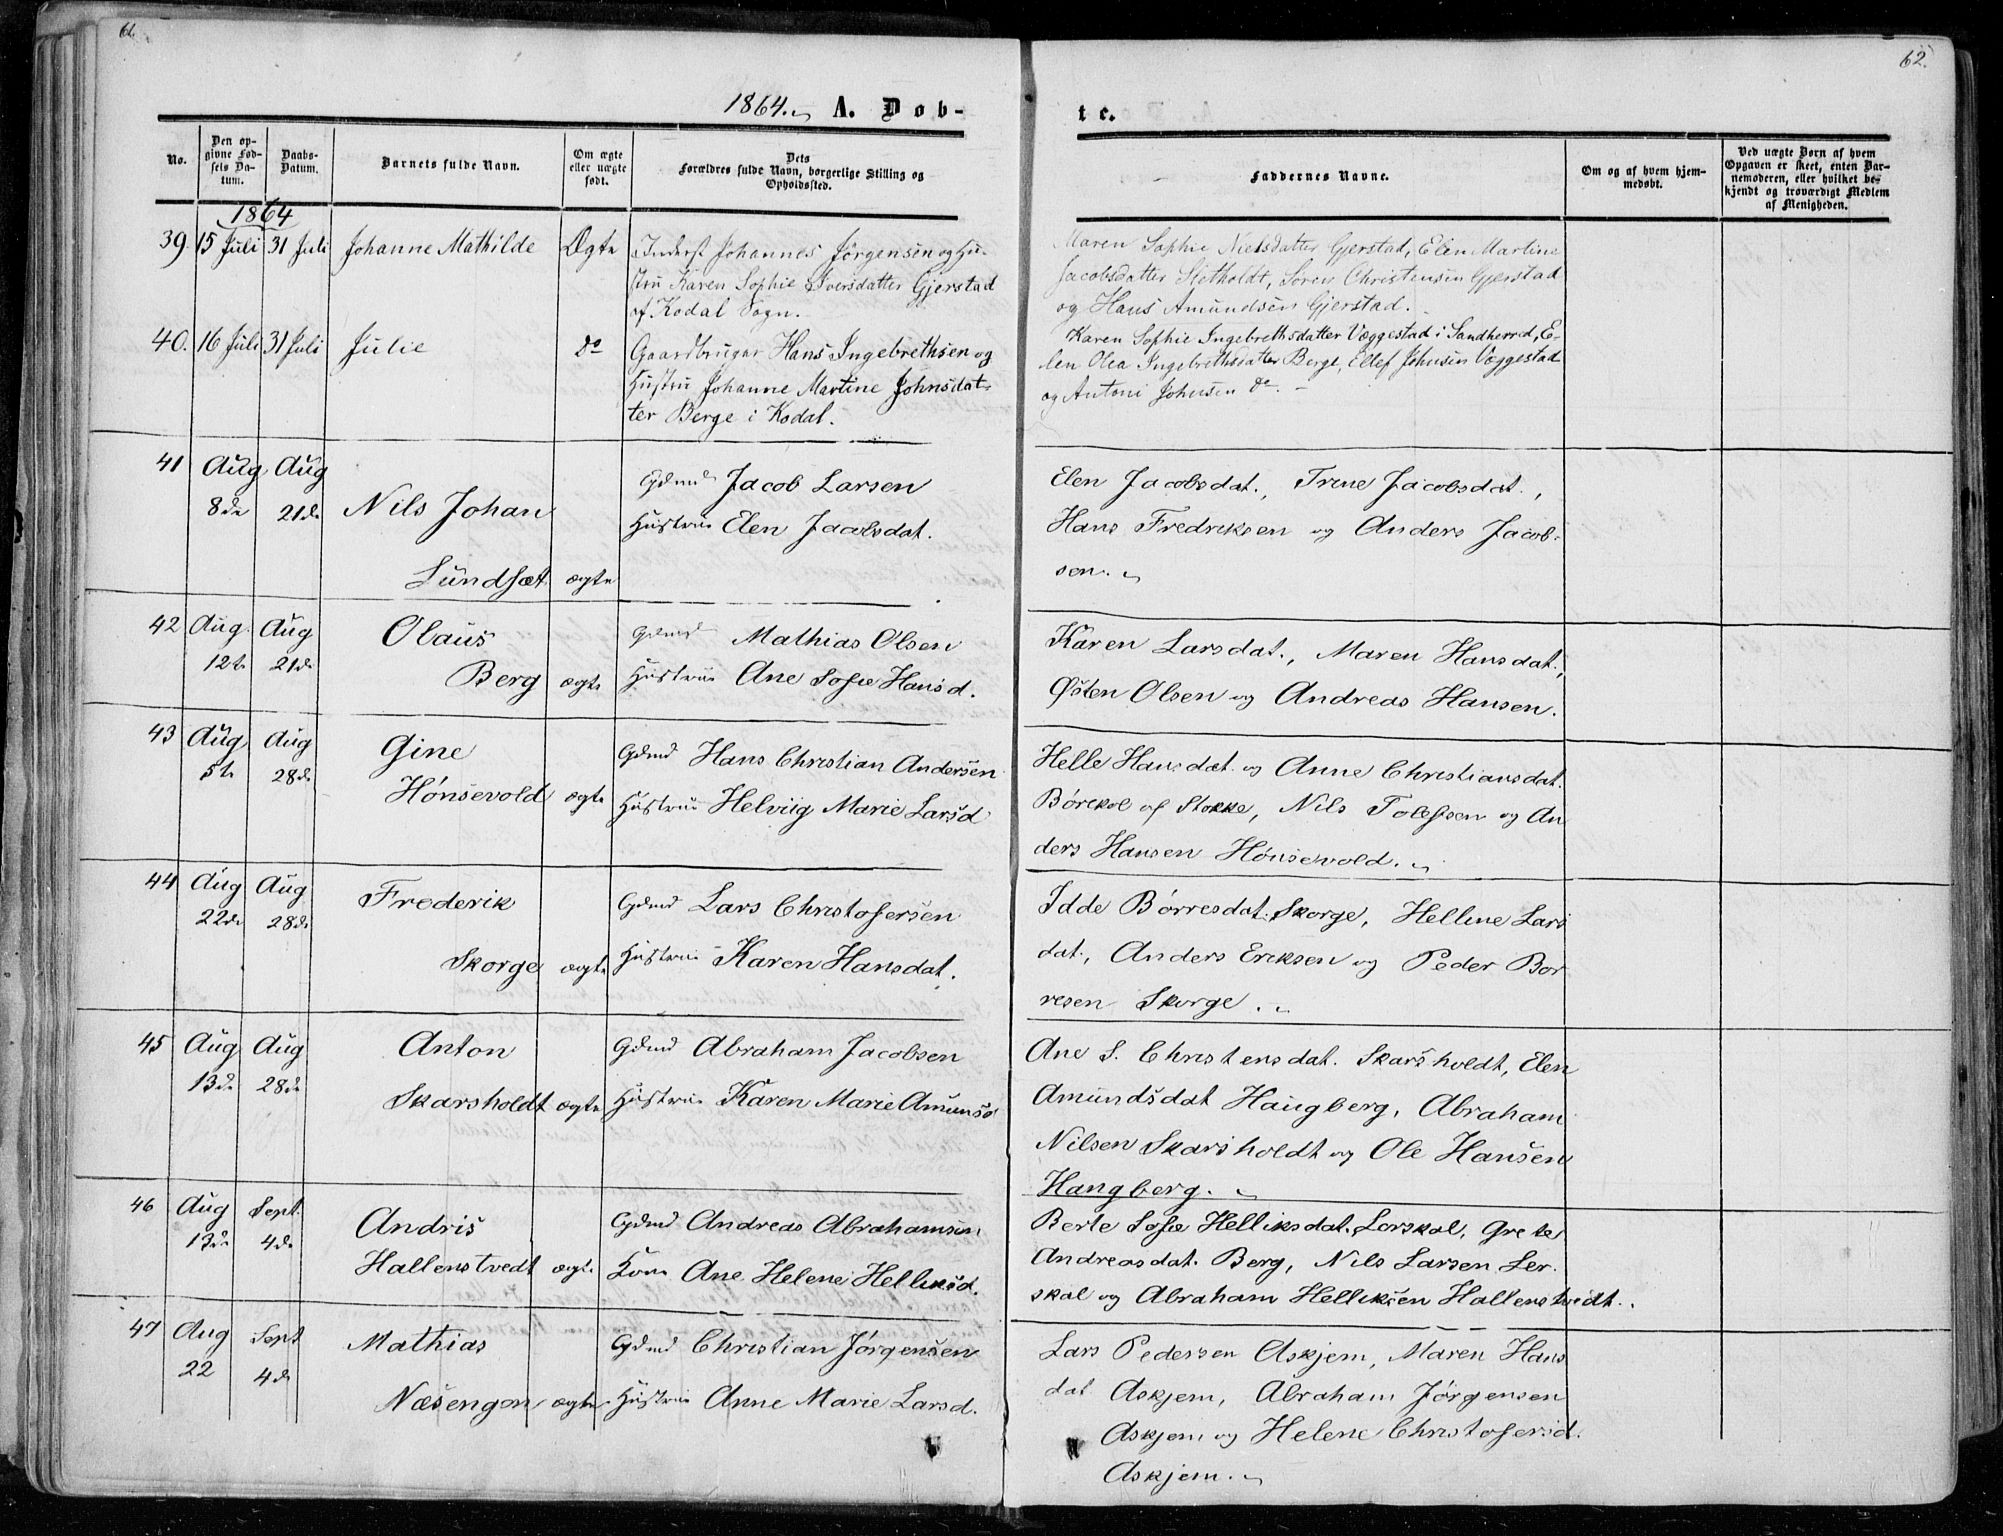 61.
1864. A. Døb-
No.
Den opgivne Fødsels Datum.
Daabs-Datum.
Barnets fulde Navn.
Om ægte eller uægte født.
Dets Forældres fulde Navn, borgerlige Stilling og Opholdssted.
1864
39 15 Juli 31 Juli Johanne Mathilde Ægte Inderst Johannes Jørgensen og Hu-
stru Karen Sophie Iversdatter Gjerstad
af Kodal Sogn.
40. 16 Juli 31 Juli Julie do Gaardbruger Hans Ingebrethsen og
Hustru Johanne Martine Johnsdat-
ter Berge i Kodal.
41 Aug Aug Gdmd Jacob Larsen
8de 21de Nils Johan Hustrue Elen Jacobsdat.
Lundsæt ægte
42 Aug. Aug Olaus Gdmd Mathias Olsen
12te 21de Berg ægte Hustrue Ane Sofie Hansd.
43 Aug Aug Gine Gdmd Hans Christian Andersen
5te 28de Hønsevold ægte Hustrue Helviig Marie Larsd
44 Aug Aug Frederik Gdmd Lars Christofersen
22de 28de Skorge ægte Hustrue Karen Hansdat.
45 Aug Aug Anton Gdmd Abraham Jacobsen
13de 28de Skarsholdt ægte Hustrue Karen Marie Amunsd
46 Aug Sept. Andris Gdmd Andreas Abrahamsen
13de 4de Hallenstvedt ægte Kone Ane Helene Helliksd.
47 Aug Sept Mathias Gdmd Christian Jørgensen
22 4de Næsengen ægte Hustrue Anne Marie Larsd.
62.
te.
Faddernes Navne.
Om og af hvem hjemmedøbt.
Ved uægte Børn af hvem
Opgaven er skeet, enten Bar-
nemoderen, eller hvilket be-
kjendt og troværdigt Medlem
af Menigheden.
Maren Sophie Nielsdatter Gjerstad, Elen Martine
Jacobsdatter Sletholdt, Søren Christensen Gjerstad
og Hans Amundsen Gjerstad.
Karen Sophie Ingebrethsdatter Væggestad i Sandherred, E-
len Olea Ingebrethsdatter Berge, Ellef Johnsen Væggestad
og Antoni Johnsen do.
Elen Jacobsdat., Trine Jacobsdat.,
Hans Fredriksen og Anders Jacob-
sen.
Karen Larsdat., Maren Hansdat.,
Østen Olsen og Andreas Hansen.
Helle Hansdat. og Anne Christiansdat.
Børekol af Stokke, Nils Tolefsen og An
ders Hansen Hønsevold.
Idde Børresdat. Skorge, Helline Lars
dat., Anders Eriksen og Peder Bør
resen Skorge.
Ane S. Christensdat. Skarsholdt, Elen
Amundsdat Haugberg, Abraham
Nilsen Skarsholdt og Ole Hansen
Haugberg.
Berte Sofie Helliksdat. Lerskal, Grete
Andreasdat. Berg, Nils Larsen Ler-
skal og Abraham Helliksen Hallenstvedt.
Lars Pedersen Askjem, Maren Hans
dat Askjem, Abraham Jørgensen
Askjem og Helene Christofersd.
Askjem.